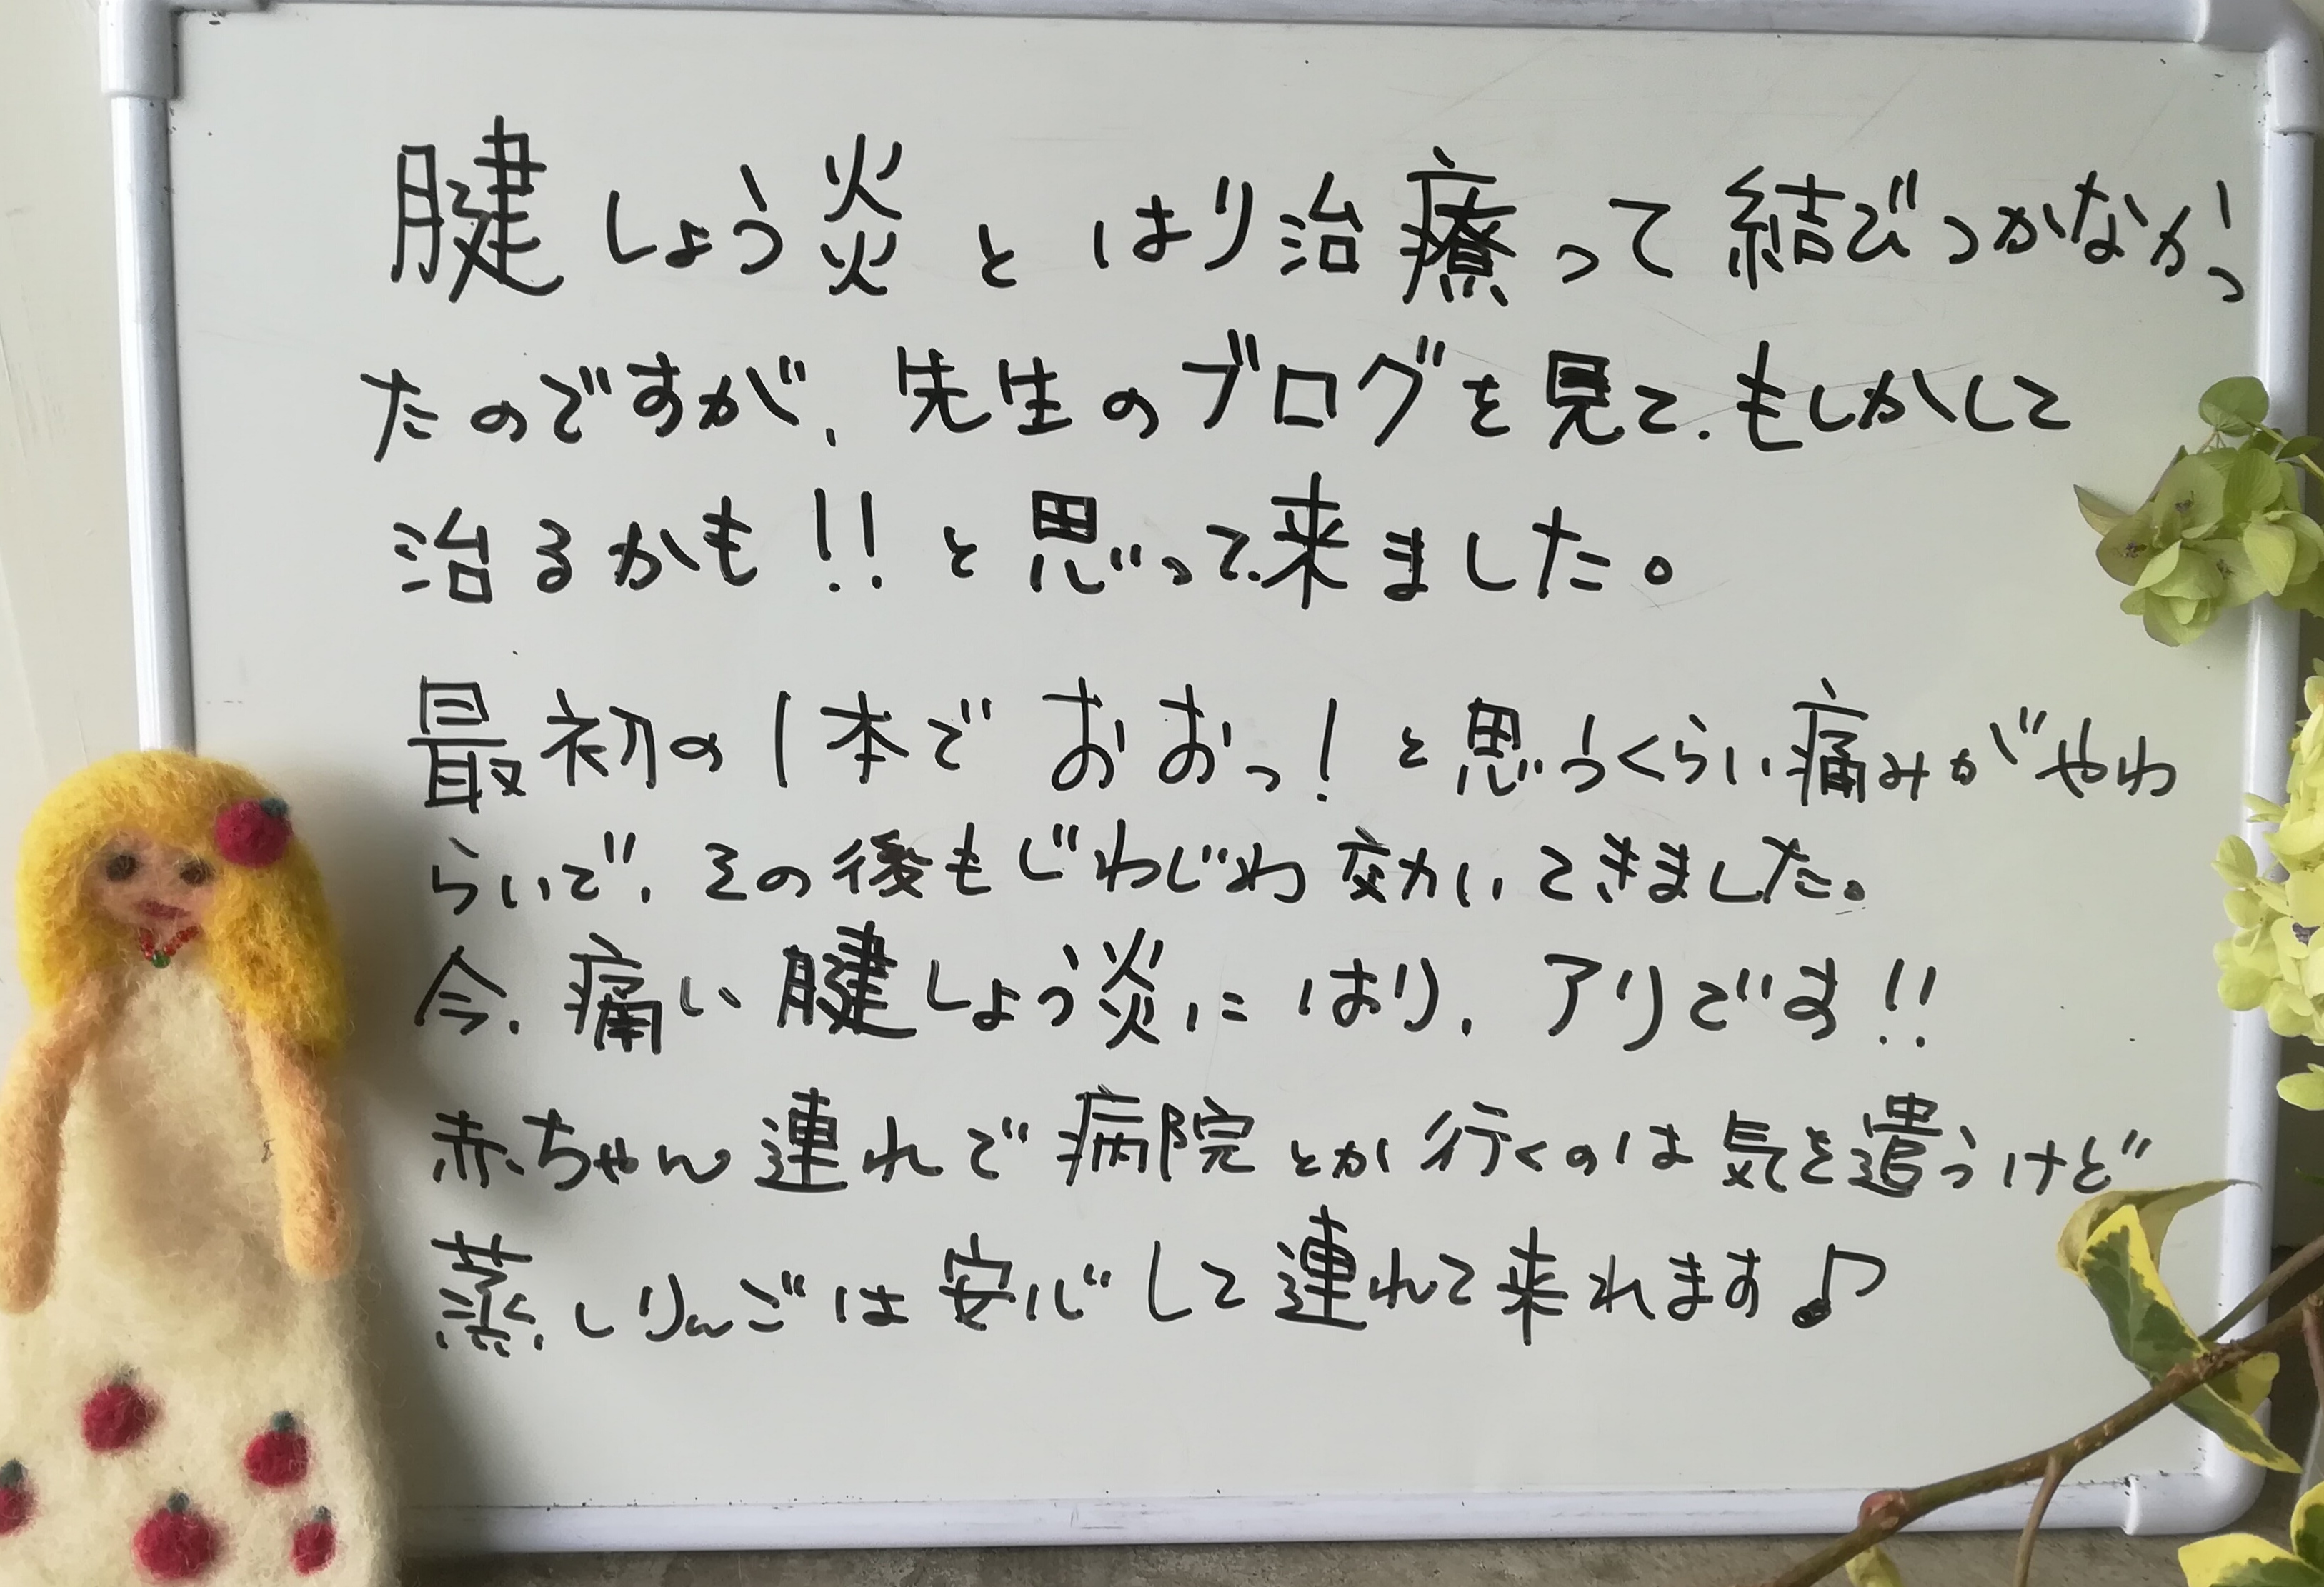 腱しょう炎とはり治療って結びつかなかっ
たのですが、先生のブログを見て、もしかして
治るかも!!と思って、来ました。
最初の1本でおおっ!と思うくらい痛みがやわ
らいで、その後もじわじわ効いてきました。
今、痛い腱しょう炎にはり、アリです!!
赤ちゃん連れで病院とか行くのは気を遣うけど
蒸しりんごは安心して連れて来れます♪